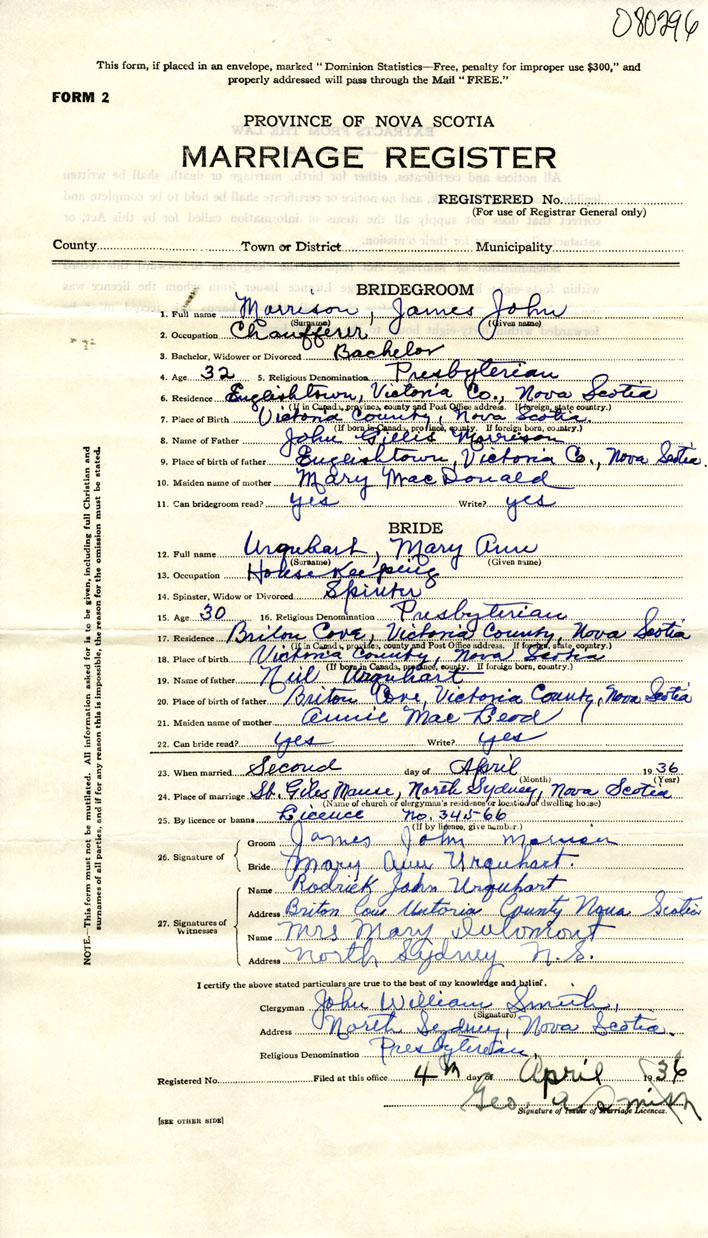 080296
This form, if placed in an envelope, marked "Dominion Statistics—Free, penalty for improper use $300," and
properly addressed will pass through the Mail "FREE."
FORM 2
PROVINCE OF NOVA SCOTIA
MARRIAGE REGISTER
REGISTERED No.
(For use of Registrar General only)
County Town or District Municipality
BRIDEGROOM
1. Full name Morrison, James John
(Surname) (Given name)
2. Occupation Chaufferer
3. Bachelor, Widower or Divorced Bachelor
4. Age 32 5. Religious Denomination Presbyterian
6. Residence Englishtown, Victoria Co., Nova Scotia
(If in Canada, province, county and Post Office address. If foreign, state country.)
7. Place of Birth Victoria County, Nova Scotia.
(If born in Canada, province, county. If foreign born, country.)
8. Name of Father John Gillis Morrison
9. Place of birth of father Englishtown, Victoria Co., Nova Scotia.
10. Maiden name of mother Mary MacDonald
11. Can bridegroom read? yes Write? yes
BRIDE
12. Full name Urquhart, Mary Ann
(Surname) (Given name)
13. Occupation House Keeping
14. Spinster, Widow or Divorced Spinter
15. Age 30 16. Religious Denomination Presbyterian
17. Residence Briton Cove, Victoria County, Nova Scotia
(If in Canada, province, county and Post Office address. If foreign, state, country.)
18. Place of birth Victoria County, Nova Scotia
(If born in Canada, province, county. If foreign born, country.)
19. Name of father Neil Urquhart
20. Place of birth of father Briton Cove, Victoria County, Nova Scotia
21. Maiden name of mother Annie Mac Leod
22. Can bride read? yes Write? yes
23. When married Second day of April 1936
(Month) (Year)
24. Place of marriage St. Giles Manse, North Sydney, Nova Scotia
(Name of church or clergyman's residence or location of dwelling house)
25. By licence or banns Licence no. 34566
(If by licence, give number.)
26. Signature of Groom James John Morrison
Bride Mary Ann Urquhart.
27. Signatures of Witnesses
Name Rodrick John Urquhart
Address Briton Cove Victoria County Nova Scotia
Name Mrs Mary
Address North Sydney N.S.
I certify the above stated particulars are true to the best of my knowledge and belief.
Clergyman John William Smith,
(Signature)
Address North Sydney, Nova Scotia.
Religious Denomination Presbyterian
Registered No. Filed at this office 4th day of April 1936
Geo. A Smith
Signature of Issuer of Marriage Licences.
[SEE OTHER SIDE]
NOTE.—This form must not be mutilated. All information asked for is to be given, including full Christian and
surnames of all parties, and if for any reason this is impossible, the reason for the omission must be stated.